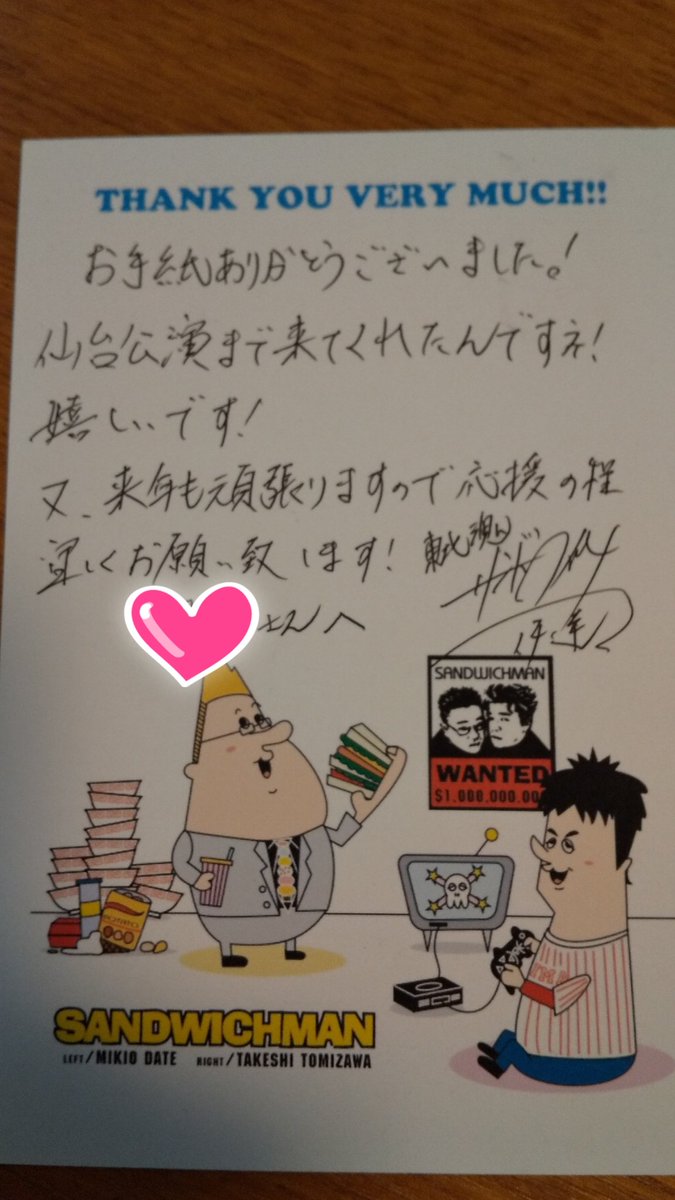 THANK YOU VERY MUCH!!
お手紙ありがとうございました。!
仙台公演まで来てくれたんですネ!
嬉しいです!
又、来年も頑張りますので応援の程
宜しくお願い致します! 東北魂
サンドウィッチ
伊達
さんへ
SANDWICHMAN
WANTED
$1,000,000,00
POTATO
SANDWICHMAN
LEFT/MIKIO DATE RIGHT/TAKESHI TOMIZAWA